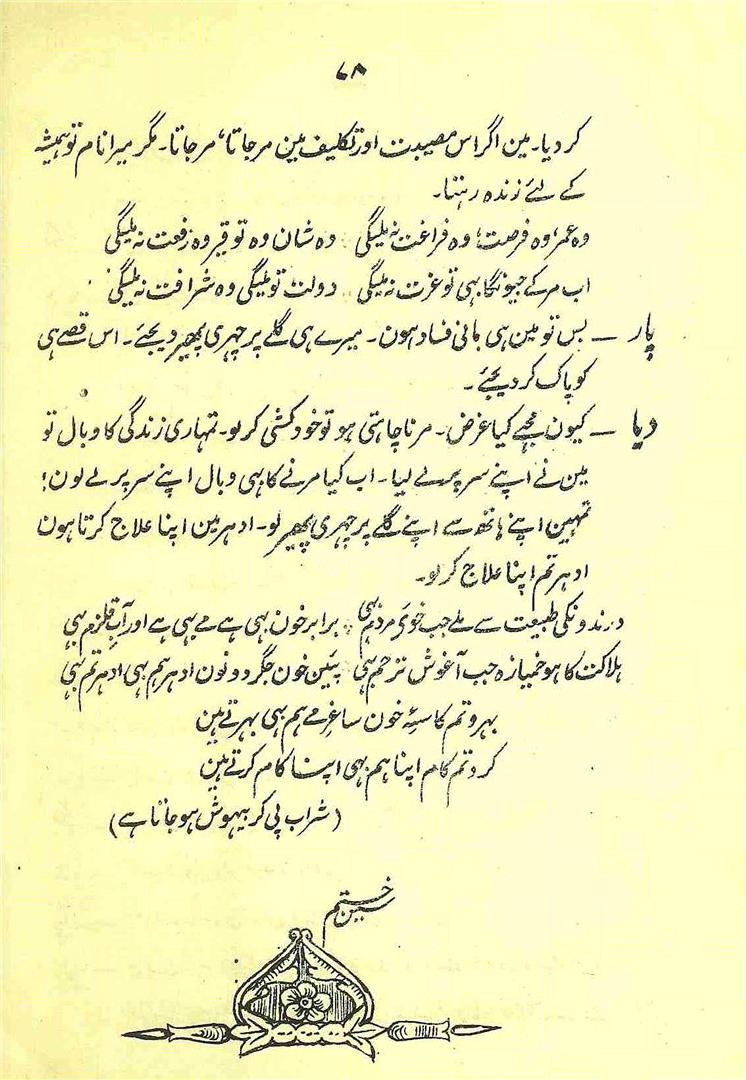 ۷۸
کر دیا۔ مین اگر اس مصیبت اور تکلیف مین مر جاتا، مر جاتا۔ مگر میرا نام تو ہمیشہ
کے لئے زندہ رہتا۔
وہ عمر، وہ فرصت، وہ فراغت نہ ملیگی وہ شان وہ توقیر وہ رفعت نہ ملیگی
اب مر کے جیونگا بہی تو عزت نہ ملیگی دولت تو ملیگی وہ شرافت نہ ملیگی
پار ـ بس تو مین ہی بانی فساد ہون۔ میرے ہی گلے پر چہری پھیر دیجئے۔ اس قصے ہی
کو پاک کر دیجئے۔
دیا ـ کیون مجہے کیا غرض۔ مرنا چاہتی ہو تو خودکشی کر لو۔ تمہاری زندگی کا وبال تو
مین نے اپنے سر پر لے لیا۔ اب کیا مرنے کا بہی وبال اپنے سر پر لے لون؛
تمہین اپنے ہاتھ سے اپنے گلے پر چہری پھیر لو۔ ادہر مین اپنا علاج کرتا ہون
ادہر تم اپنا علاج کر لو۔
درندونکی طبیعت سے ملے جب خوئ مردم بہی برابر خون بہی ہے مے بہی ہے اور آب قلزم بہی
ہلاکت کا ہو خمیازہ جب آغوش ترحم بہی پئین خون جگر دونون ادہر ہم بہی ادہر تم بہی
بہرو تم کاسۂ خون ساغر مے ہم بہی بہرتے ہین
کرو تم کام اپنا ہم بہی اپنا کام کرتے ہین
(شراب پی کر بیہوش ہو جاتا ہے)
سین ختم